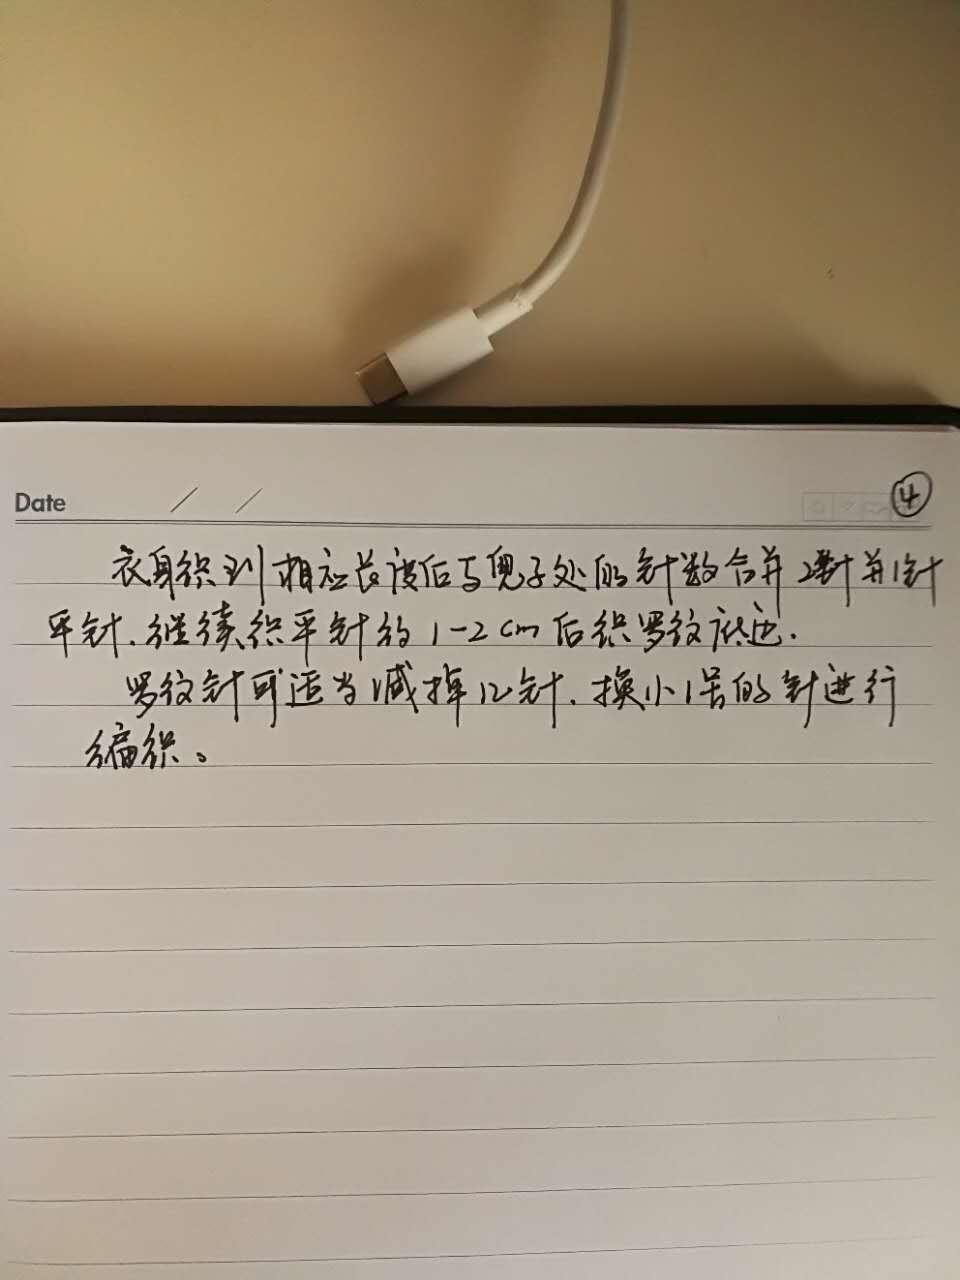 Date / /
④
衣身织到相应长度后与兜子处的针数合并2针并1针
平针.继续织平针约1-2cm后织罗纹底边.
罗纹针可适当减掉12针.换小1号的针进行
编织。